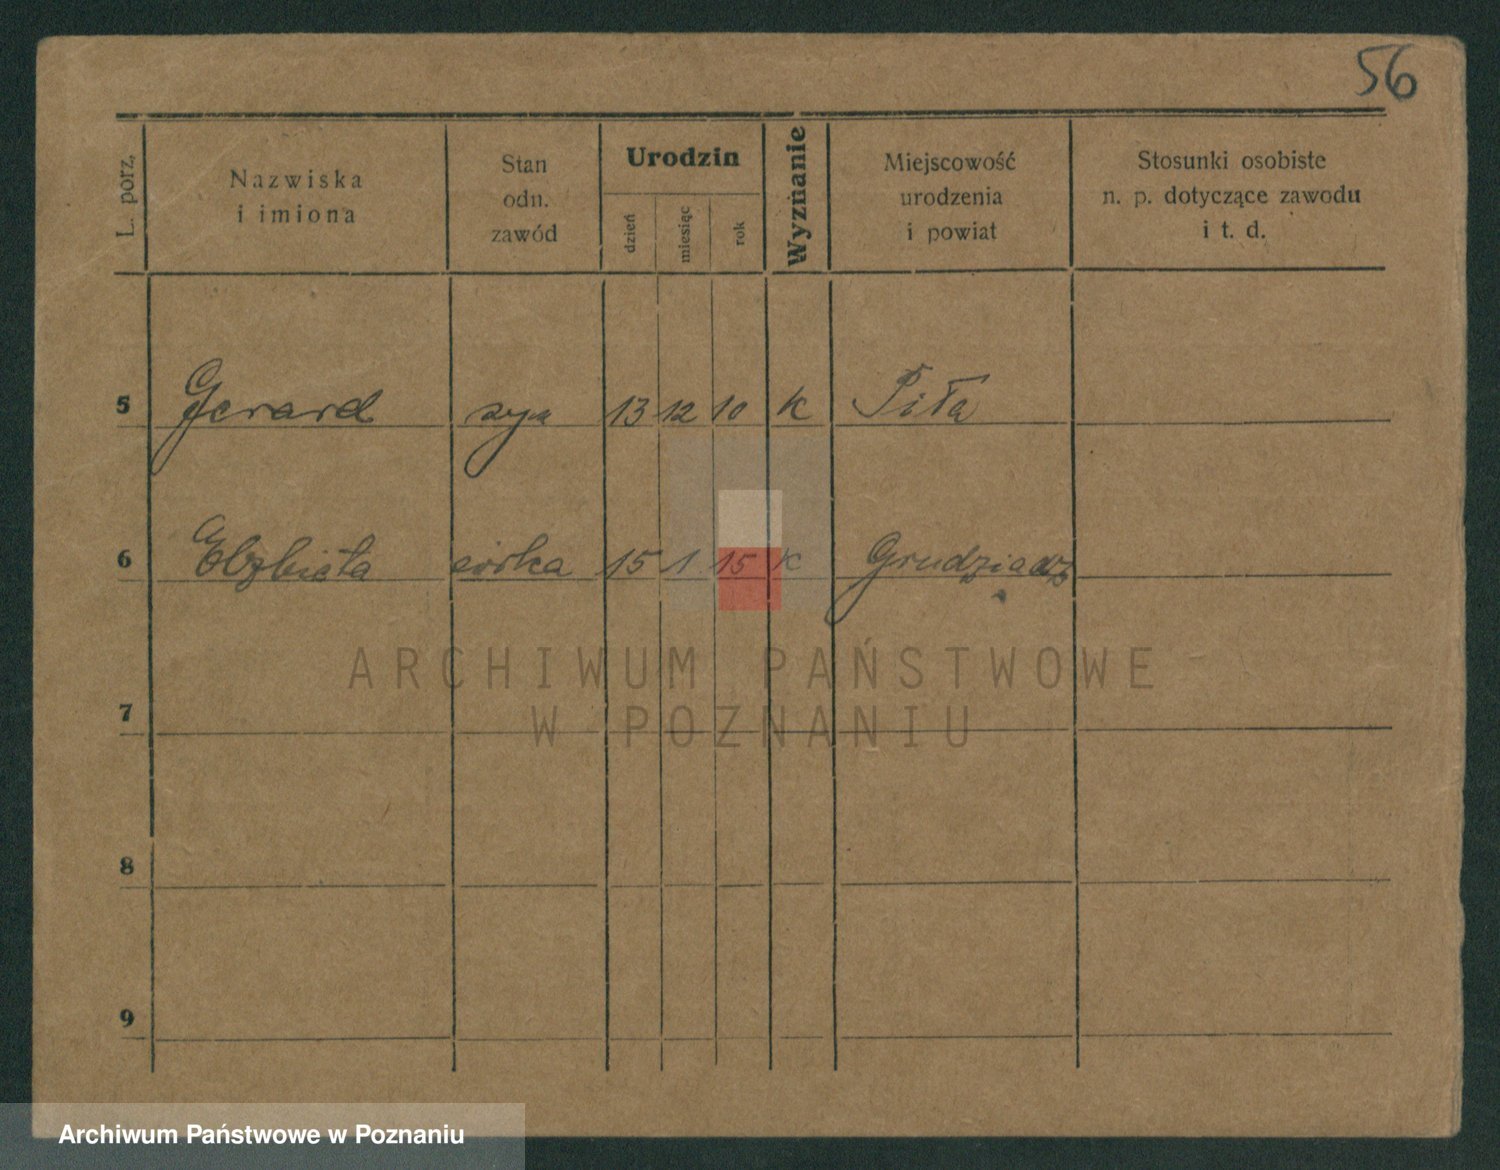 56
L. porz.
Nazwiska
i imiona
Stan
odn.
zawód
Urodzin
dzień
miesiąc
rok
Wyznanie
Miejscowość
urodzenia
i powiat
Stosunki osobiste
n. p. dotyczące zawodu
i t. d.
5 Gerard syn 13 12 10 K Piła
6 Elzbieta córka 15 1 15 K Grudziądz
ARCHIWUM PAŃSTWOWE
7
W POZNANIU
8
9
Archiwum Państwowe w Poznaniu